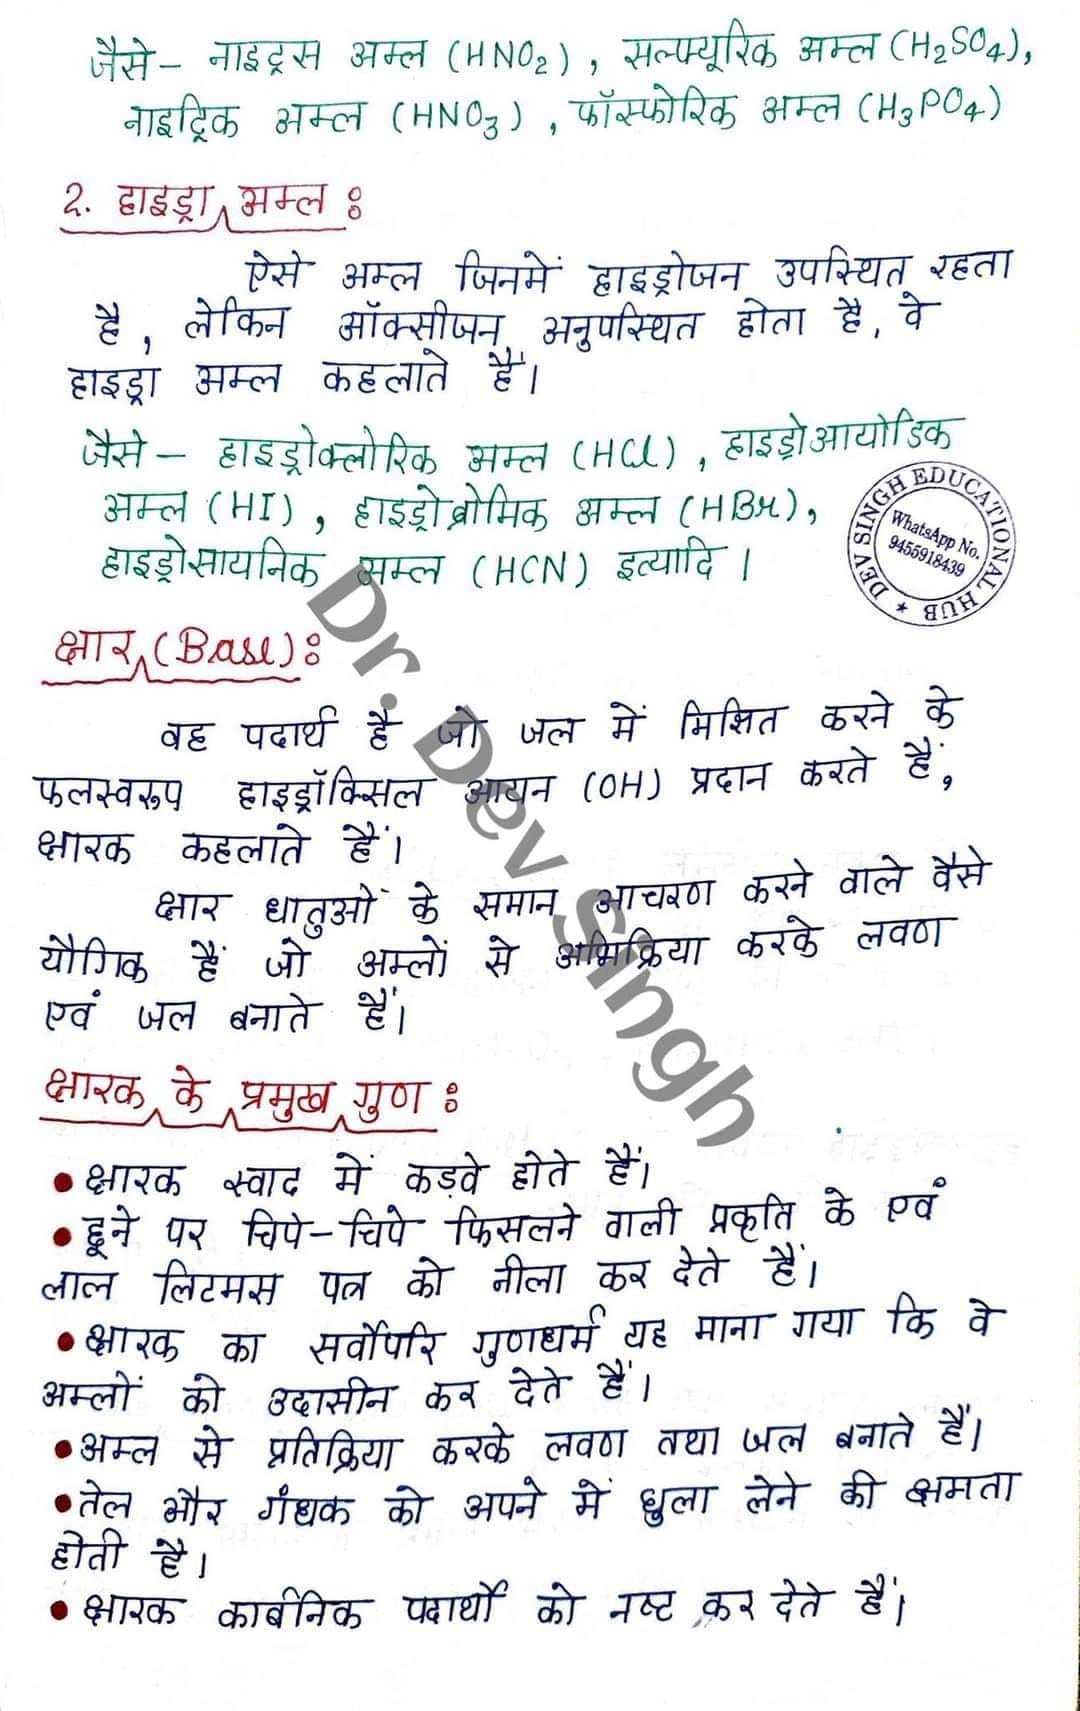 जैसे- नाइट्रस अम्ल (HNO₂), सल्फ्यूरिक अम्ल (H₂SO₄),
नाइट्रिक अम्ल (HNO₃), फॉस्फोरिक अम्ल (H₃PO₄)
2. हाइड्रा अम्ल :
ऐसे अम्ल जिनमें हाइड्रोजन उपस्थित रहता
है, लेकिन ऑक्सीजन अनुपस्थित होता है, वे
हाइड्रा अम्ल कहलाते हैं।
जैसे - हाइड्रोक्लोरिक अम्ल (HCl), हाइड्रोआयोडिक
अम्ल (HI), हाइड्रोब्रोमिक अम्ल (HBr),
हाइड्रोसायनिक अम्ल (HCN) इत्यादि।
DEV SINGH EDUCATIONAL HUB ★
WhatsApp No.
9455918439
क्षार (Base):
वह पदार्थ है जो जल में मिश्रित करने के
फलस्वरूप हाइड्रॉक्सिल आयन (OH) प्रदान करते हैं,
क्षारक कहलाते हैं।
क्षार धातुओं के समान आचरण करने वाले वैसे
यौगिक हैं जो अम्लों से अभिक्रिया करके लवण
एवं जल बनाते हैं।
क्षारक के प्रमुख गुण :
• क्षारक स्वाद में कड़वे होते हैं।
• छूने पर चिपे-चिपे फिसलने वाली प्रकृति के एवं
लाल लिटमस पत्र को नीला कर देते हैं।
• क्षारक का सर्वोपरि गुणधर्म यह माना गया कि वे
अम्लों को उदासीन कर देते हैं।
• अम्ल से प्रतिक्रिया करके लवण तथा जल बनाते हैं।
• तेल और गंधक को अपने में घुला लेने की क्षमता
होती है।
• क्षारक कार्बनिक पदार्थों को नष्ट कर देते हैं।
Dr. Dev Singh